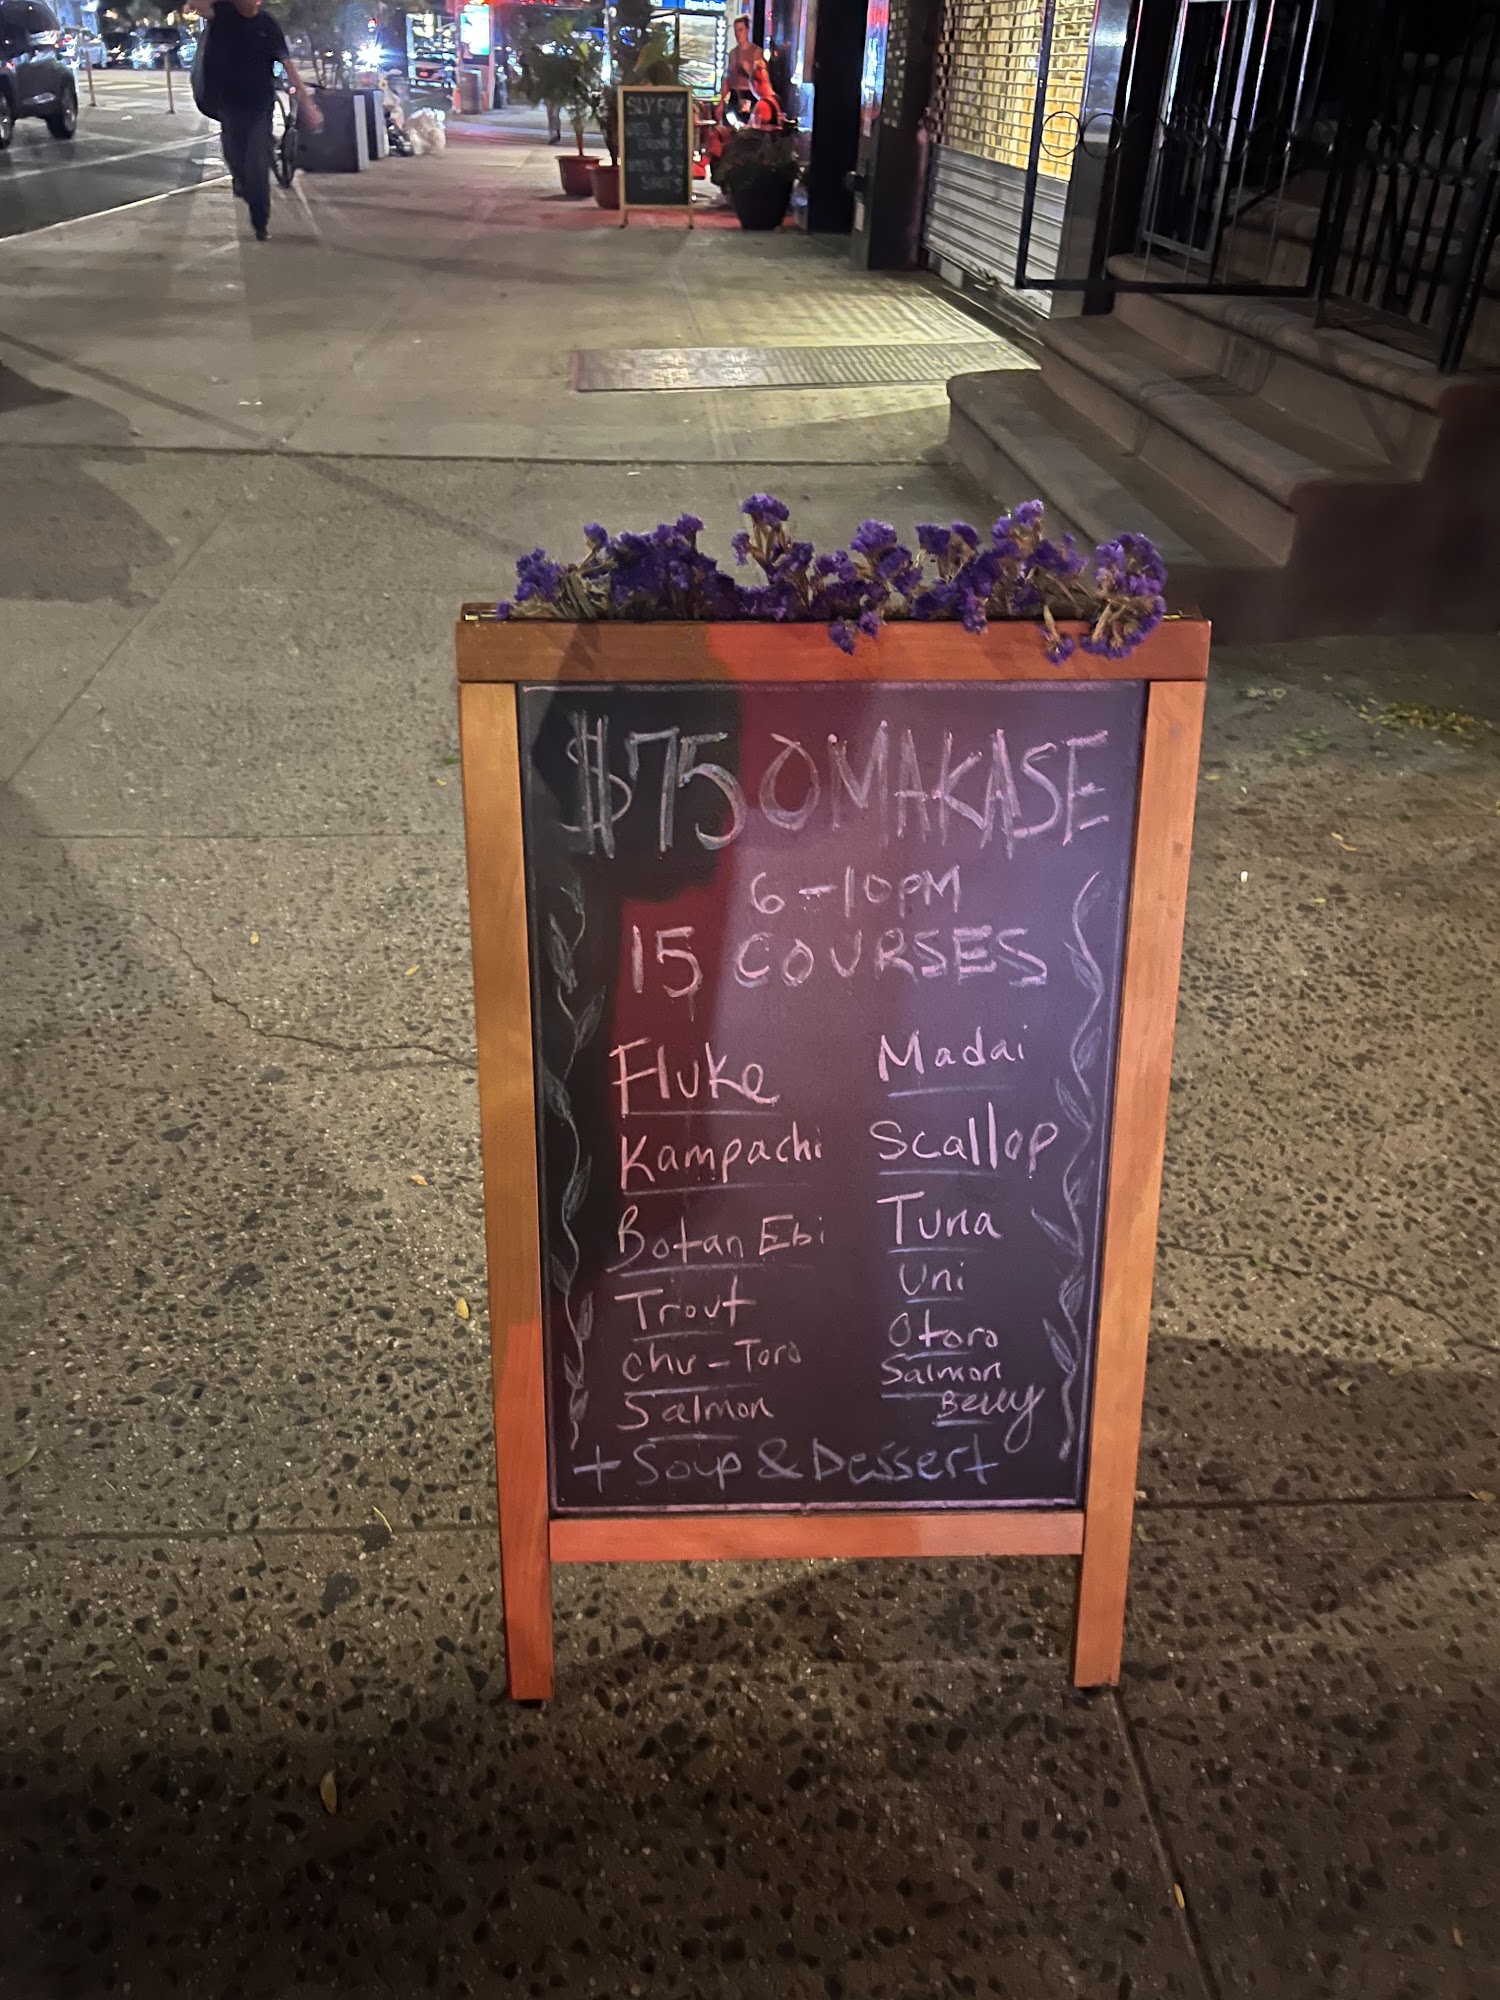 SLY FOX
WELL $7
DRINKS
WELL $5
SHOTS
$75 OMAKASE
6-10PM
15 COURSES
Fluke
Kampachi
Botan Ebi
Trout
Chu-Toro
Salmon
Madai
Scallop
Tuna
Uni
Otoro
Salmon
Belly
+ Soup & Dessert